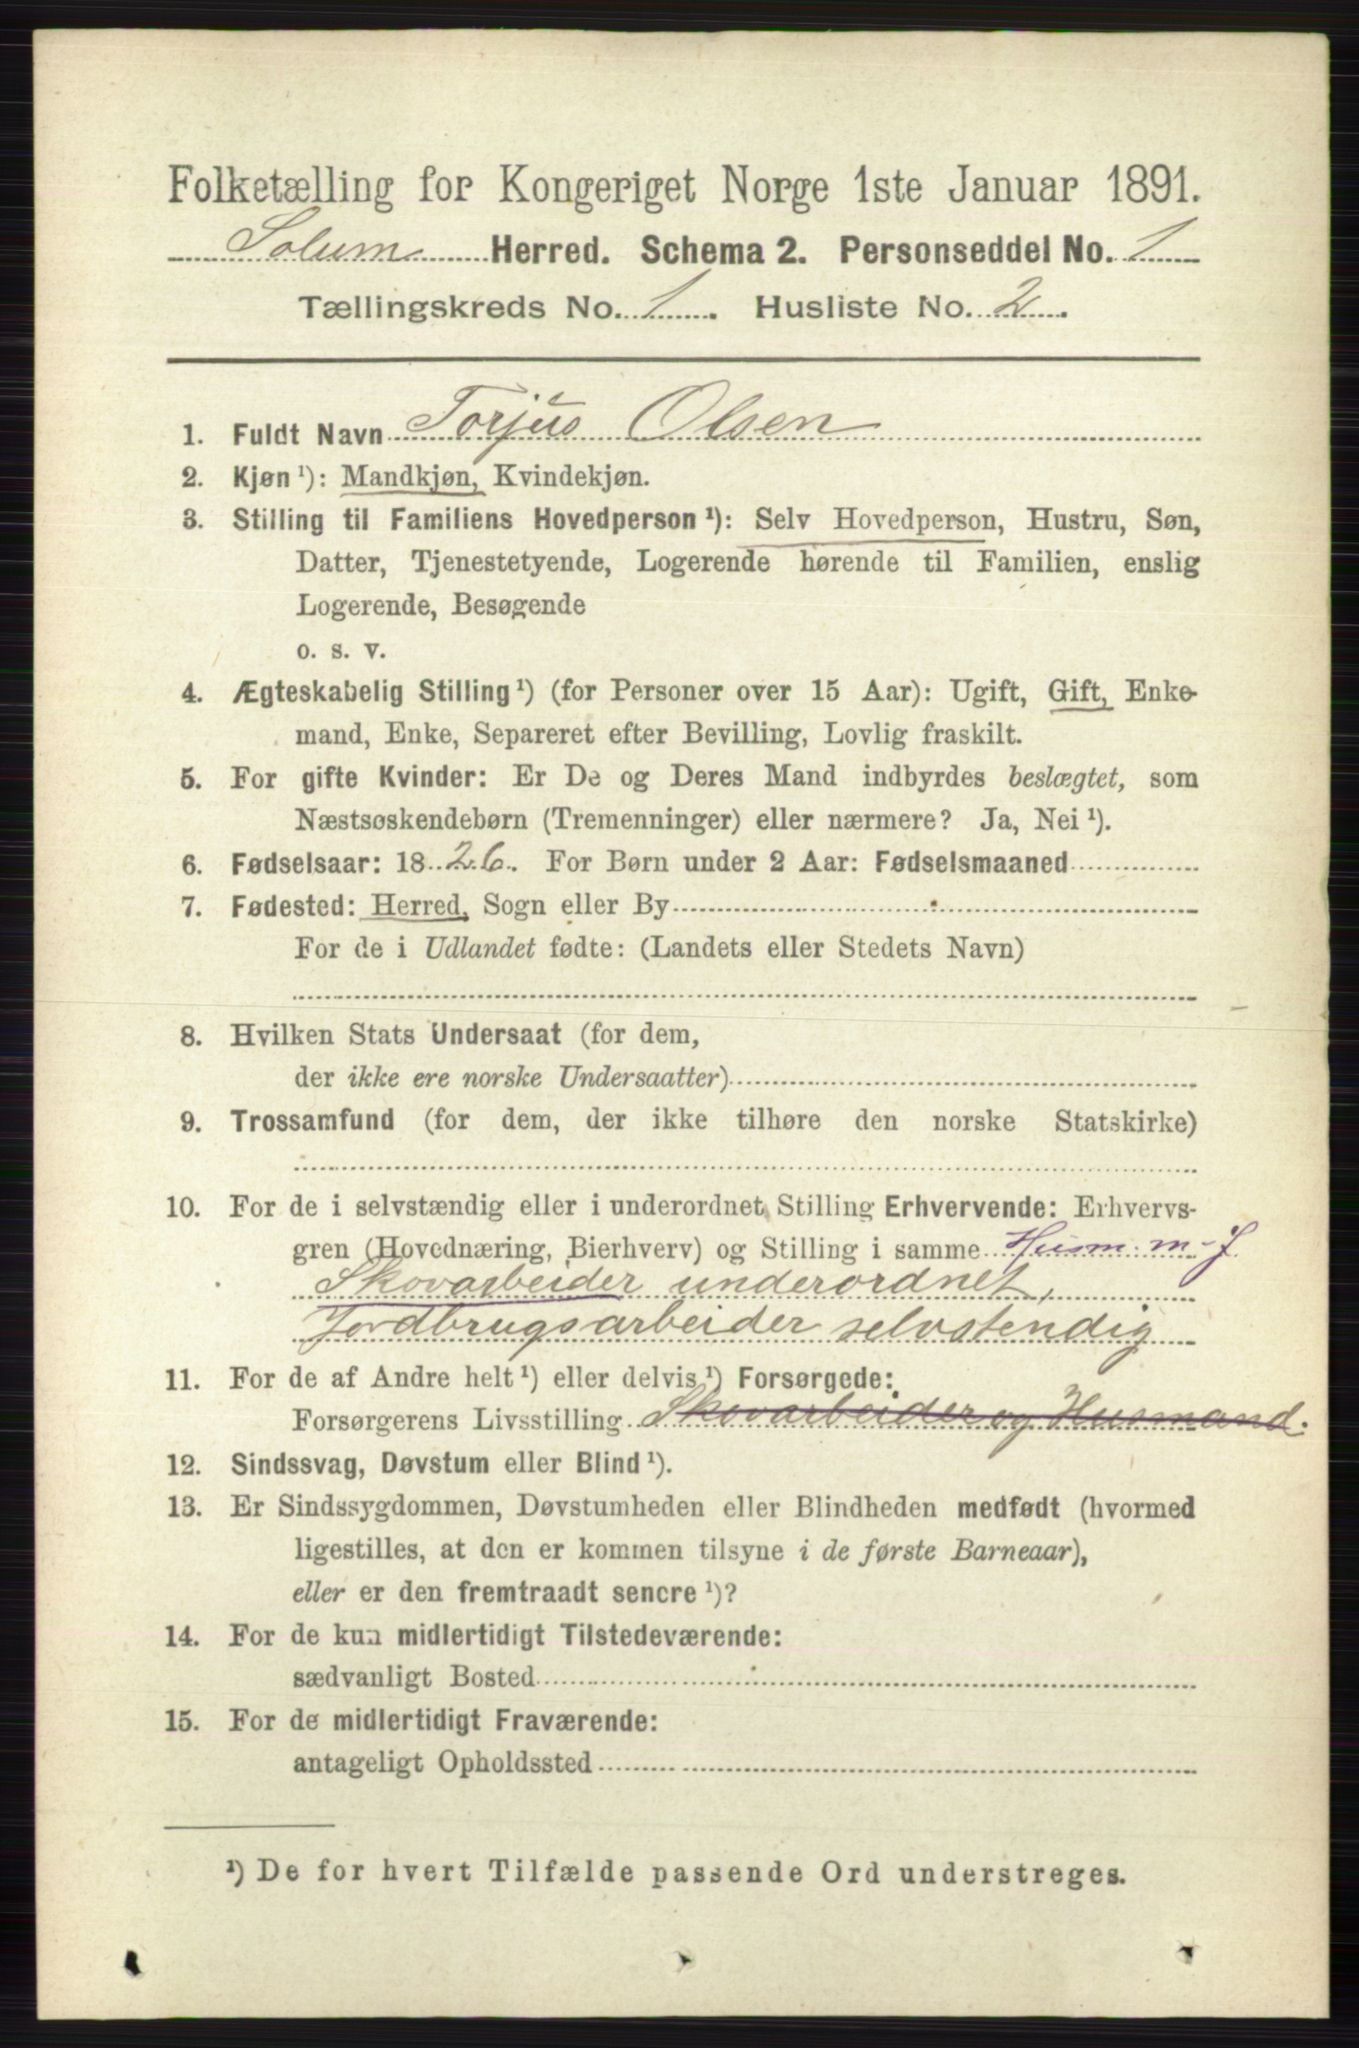 Folketælling for Kongeriget Norge 1ste Januar 1891.
Solum Herred. Schema 2. Personseddel No. 1
Tællingskreds No. 1. Husliste No. 2.
1. Fuldt Navn Torjus Olsen
2. Kjøn ¹): Mandkjøn, Kvindekjøn.
3. Stilling til Familiens Hovedperson ¹): Selv Hovedperson, Hustru, Søn,
Datter, Tjenestetyende, Logerende hørende til Familien, enslig
Logerende, Besøgende
o. s. v.
4. Ægteskabelig Stilling ¹) (for Personer over 15 Aar): Ugift, Gift, Enke-
mand, Enke, Separeret efter Bevilling, Lovlig fraskilt.
5. For gifte Kvinder: Er De og Deres Mand indbyrdes beslægtet, som
Næstsøskendebørn (Tremenninger) eller nærmere? Ja, Nei ¹).
6. Fødselsaar: 1826. For Børn under 2 Aar: Fødselsmaaned
7. Fødested: Herred, Sogn eller By
For de i Udlandet fødte: (Landets eller Stedets Navn)
8. Hvilken Stats Undersaat (for dem,
der ikke ere norske Undersaatter)
9. Trossamfund (for dem, der ikke tilhøre den norske Statskirke)
10. For de i selvstændig eller i underordnet Stilling Erhvervende: Erhvervs-
gren (Hovednæring, Bierhverv) og Stilling i samme Husm. m. J
Skovarbeider underordnet,
Jordbrugsarbeider selvstendig
11. For de af Andre helt ¹) eller delvis ¹) Forsørgede:
Forsørgerens Livsstilling Skovarbeider og Husmand.
12. Sindssvag, Døvstum eller Blind ¹).
13. Er Sindssygdommen, Døvstumheden eller Blindheden medfødt (hvormed
ligestilles, at den er kommen tilsyne i de første Barneaar),
eller er den fremtraadt senere ¹)?
14. For de kun midlertidigt Tilstedeværende:
sædvanligt Bosted
15. For de midlertidigt Fraværende:
antageligt Opholdssted
¹) De for hvert Tilfælde passende Ord understreges.